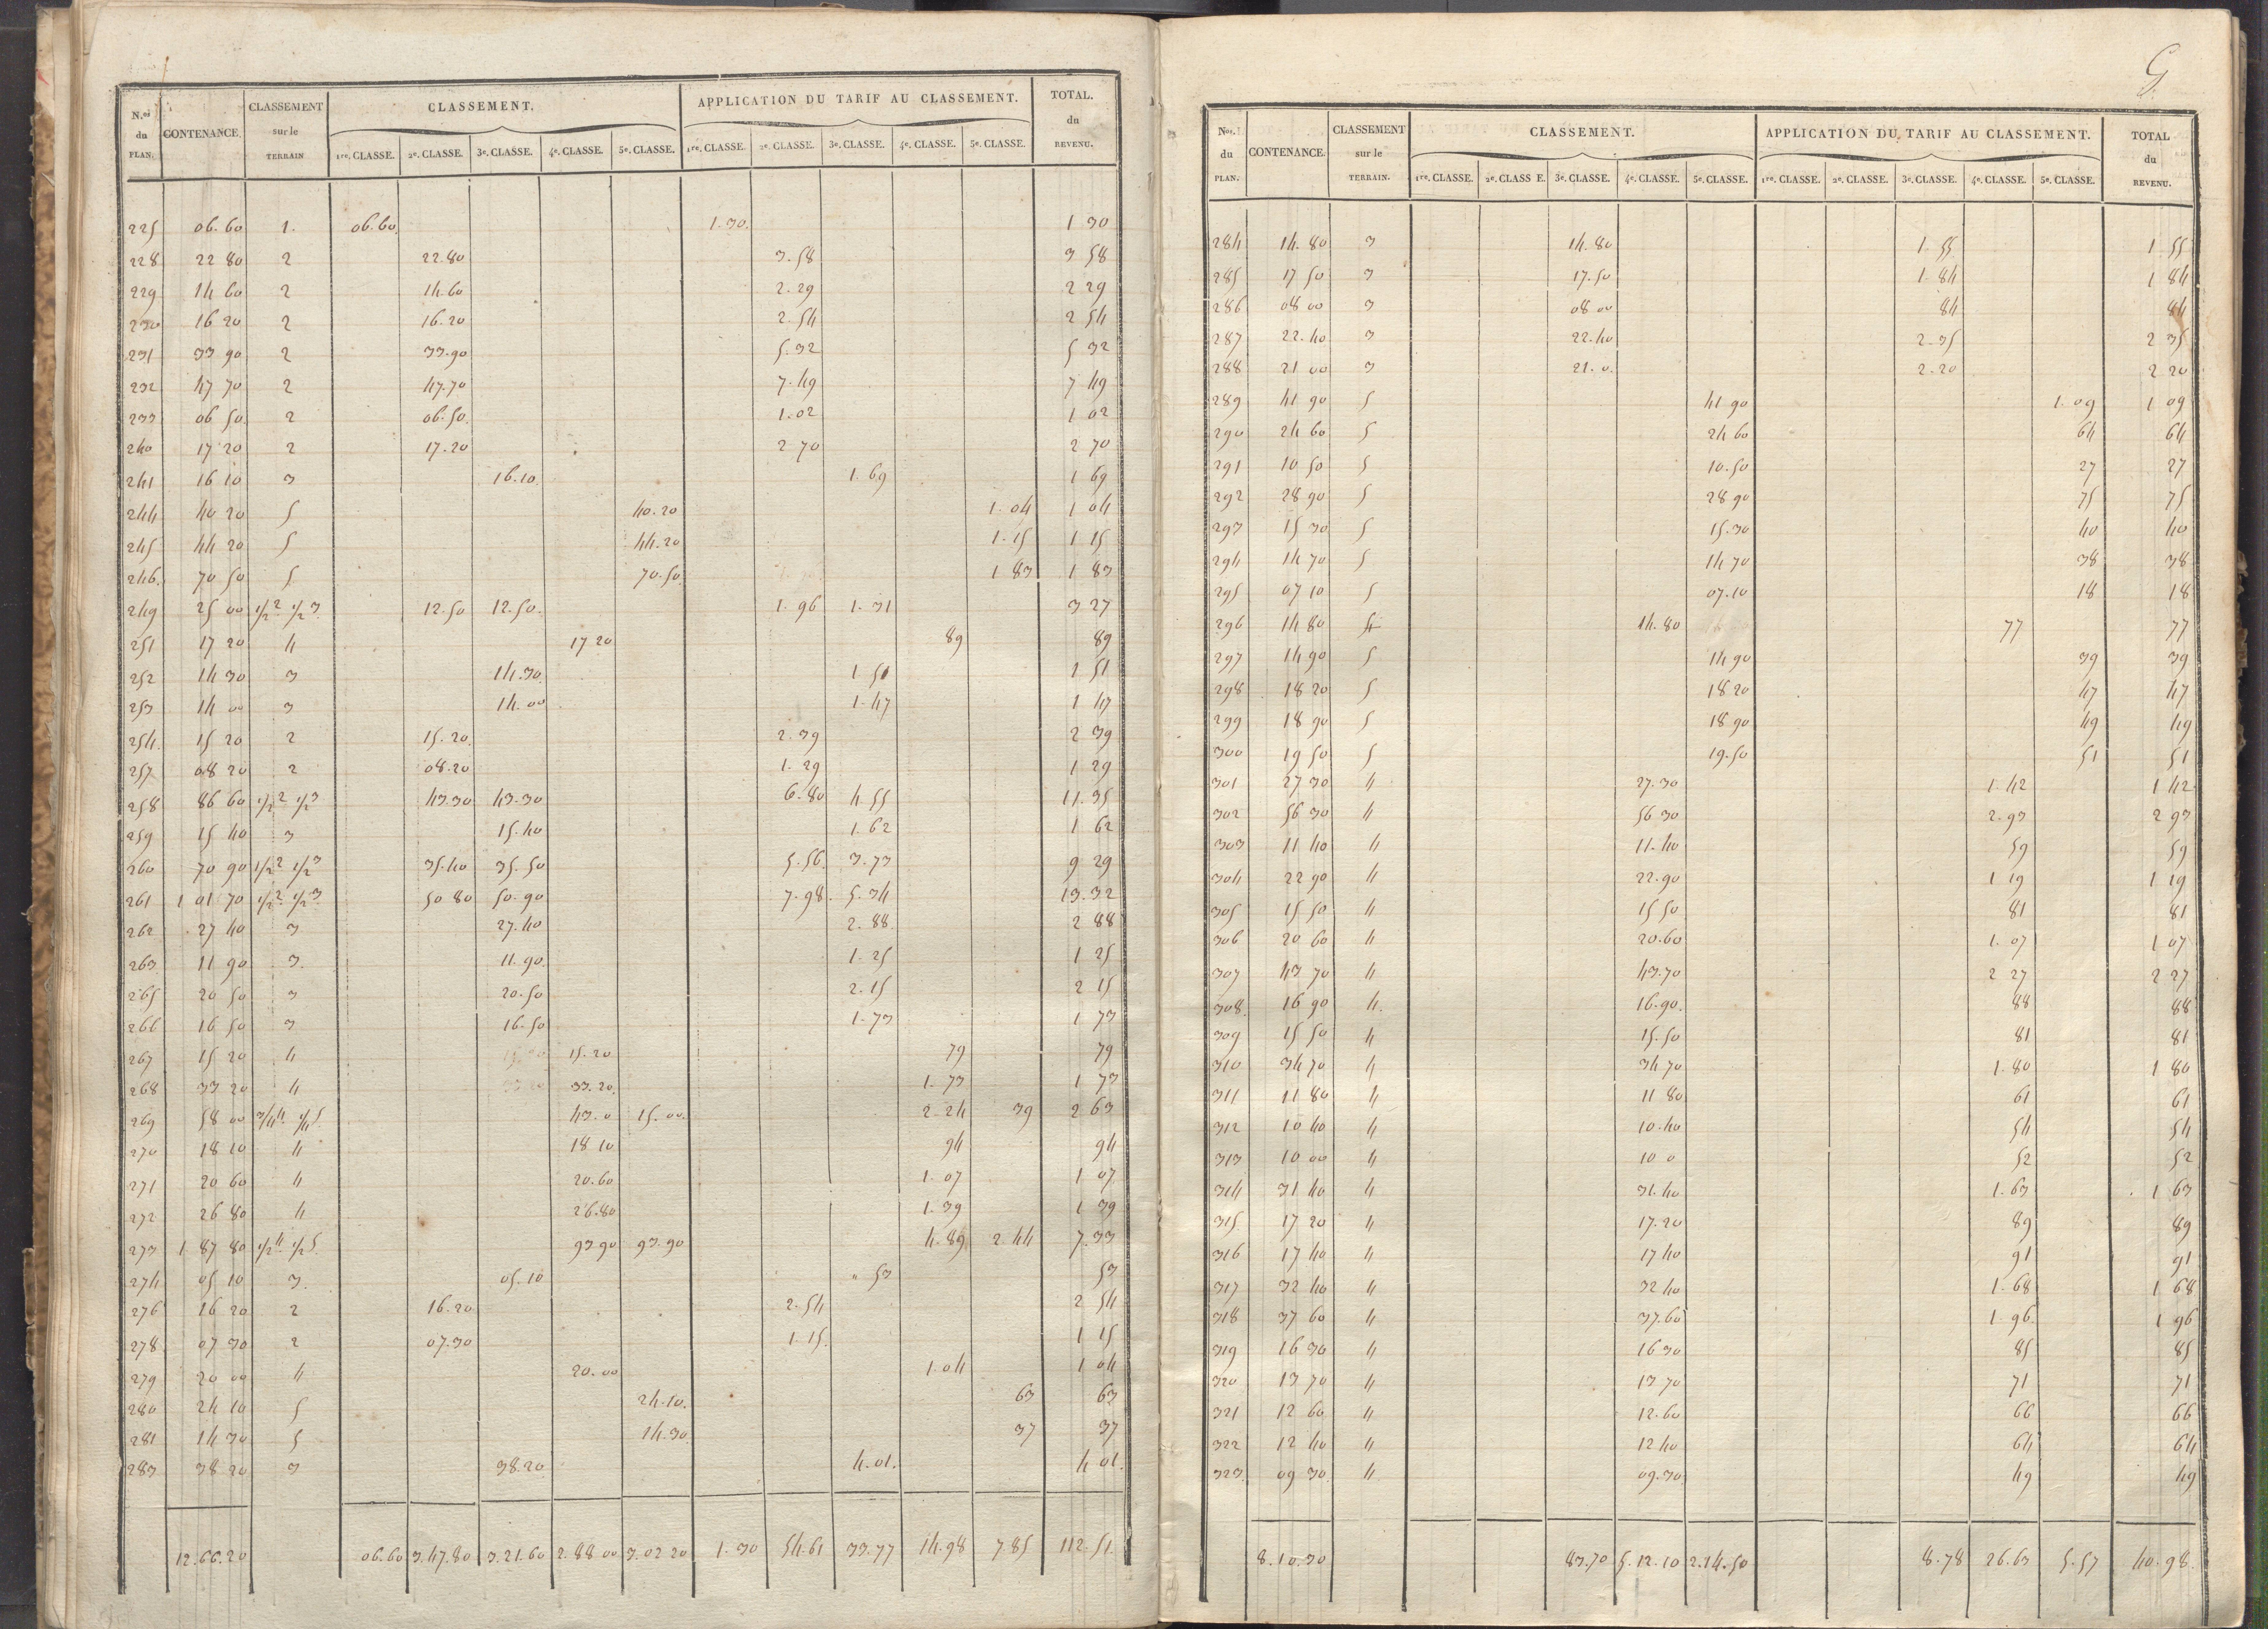 N.os du PLAN. CONTENANCE. CLASSEMENT sur le TERRAIN CLASSEMENT. APPLICATION DU TARIF AU CLASSEMENT. TOTAL. du REVENU.
1re. CLASSE. 2e. CLASSE. 3e. CLASSE. 4e. CLASSE. 5e. CLASSE. 1re. CLASSE. 2e. CLASSE. 3e. CLASSE. 4e. CLASSE. 5e. CLASSE.
225 06.60 1. 06.60. 1.30. 1 30
228 22 80 2 22.80 3.58 3 58
229 14 60 2 14.60 2.29 2 29
230 16 20 2 16.20 2.54 2 54
231 33 90 2 33.90 5.32 5 32
232 47 70 2 47.70 7.49 7 49
233 06 50 2 06.50. 1.02 1 02
240 17 20 2 17.20 2.70 2 70
241 16 10 3 16.10 1.69 1 69
244 40 20 5 40.20 1.04 1 04
245 44 20 5 44.20 1.15 1 15
246. 70 50 5 70.50 1 83 1 83
249 25 00 1/2 2 1/2 3 12.50 12.50. 1.96 1.31 3 27
251 17 20 4 17 20 89 89
252 14 30 3 14.30 1 51 1 51
253 14 00 3 14.00 1.47 1 47
254. 15 20 2 15.20. 2.39 2 39
257 08 20 2 08.20 1.29 1 29
258 86 60 1/2 2 1/2 3 43.30 43.30 6.80 4 55 11.35
259 15 40 3 15.40 1.62 1 62
260 70 90 1/2 2 1/2 3 35.40 35.50 5.56. 3.73 9 29
261 1 01 70 1/2 2 1/2 3 50 80 50.90 7.98. 5.34 13.32
262 27 40 3 27.40 2.88 2 88
263 11 90 3. 11.90. 1.25 1 25
265 20 50 3 20.50 2.15 2 15
266 16 50 3 16.50 1.73 1 73
267 15 20 4 15.20 79 79
268 33 20 4 33.20 1.73 1 73
269 58 00 3/4 4 1/4 5 43.0 15.00. 2.24 39 2 63
270 18 10 4 18 10 94 94
271 20 60 4 20.60 1.07 1 07
272 26 80 4 26.80 1.39 1 39
273 1 87 80 1/2 4 1/2 5 93 90 93.90 4.89 2 44 7.33
274 05 10 3. 05.10 " 53 53
276 16 20 2 16.20 2.54 2 54
278 07 30 2 07.30 1.15. 1 15
279 20 00 4 20.00 1.04 1 04
280 24 10 5 24.10. 63 63
281 14 30 5 14.30. 37 37
283 38 20 3 38.20 4.01. 4 01.
12.66.20 06.60 3.47.80 3.21.60 2.88 00 3.02 20 1.30 54.61 33.77 14.98 7 85 112.51
Nos. du PLAN. CONTENANCE. CLASSEMENT sur le TERRAIN. CLASSEMENT. APPLICATION DU TARIF AU CLASSEMENT. TOTAL du REVENU.
1re. CLASSE. 2e. CLASS E. 3e. CLASSE. 4e. CLASSE. 5e. CLASSE. 1re. CLASSE. 2e. CLASSE. 3e. CLASSE. 4e. CLASSE. 5e. CLASSE.
284 14.80 3 14.80 1.55 1 55
285 17 50 3 17.50 1.84 1 84
286 08 00 3 08 00 84 84
287 22.40 3 22.40 2.35 2 35
288 21 00 3 21.0. 2.20 2 20
289 41 90 5 41 90 1.09 1 09
290 24 60 5 24 60 64 64
291 10 50 5 10.50 27 27
292 28 90 5 28 90 75 75
293 15 30 5 15.30 40 40
294 14 70 5 14 70 38 38
295 07 10 5 07.10 18 18
296 14 80 4 14.80 77 77
297 14 90 5 14 90 39 39
298 18 20 5 18 20 47 47
299 18 90 5 18 90 49 49
300 19 50 5 19.50 51 51
301 27 30 4 27.30 1.42 1 42
302 56 30 4 56 30 2.93 2 93
303 11 40 4 11.40 59 59
304 22 90 4 22.90 1 19 1 19
305 15 50 4 15 50 81 81
306 20 60 4 20.60 1.07 1 07
307 43 70 4 43.70 2 27 2 27
308. 16 90 4. 16.90. 88 88
309 15 50 4 15.50 81 81
310 34 70 4 34.70 1.80 1 80
311 11 80 4 11 80 61 61
312 10 40 4 10.40 54 54
313 10 00 4 10 0 52 52
314 31 40 4 31.40 1.63 1 63
315 17 20 4 17.20 89 89
316 17 40 4 17 40 91 91
317 32 40 4 32 40 1.68 1 68
318 37 60 4 37.60 1 96. 1 96
319 16 30 4 16 30 85 85
320 13 70 4 13 70 71 71
321 12 60 4 12.60 66 66
322 12 40 4 12 40 64 64
323. 09 30. 4 09.30. 49 49
8.10.30 83.70 5.12.10 2.14.50 8.78 26.63 5.57 40.98.